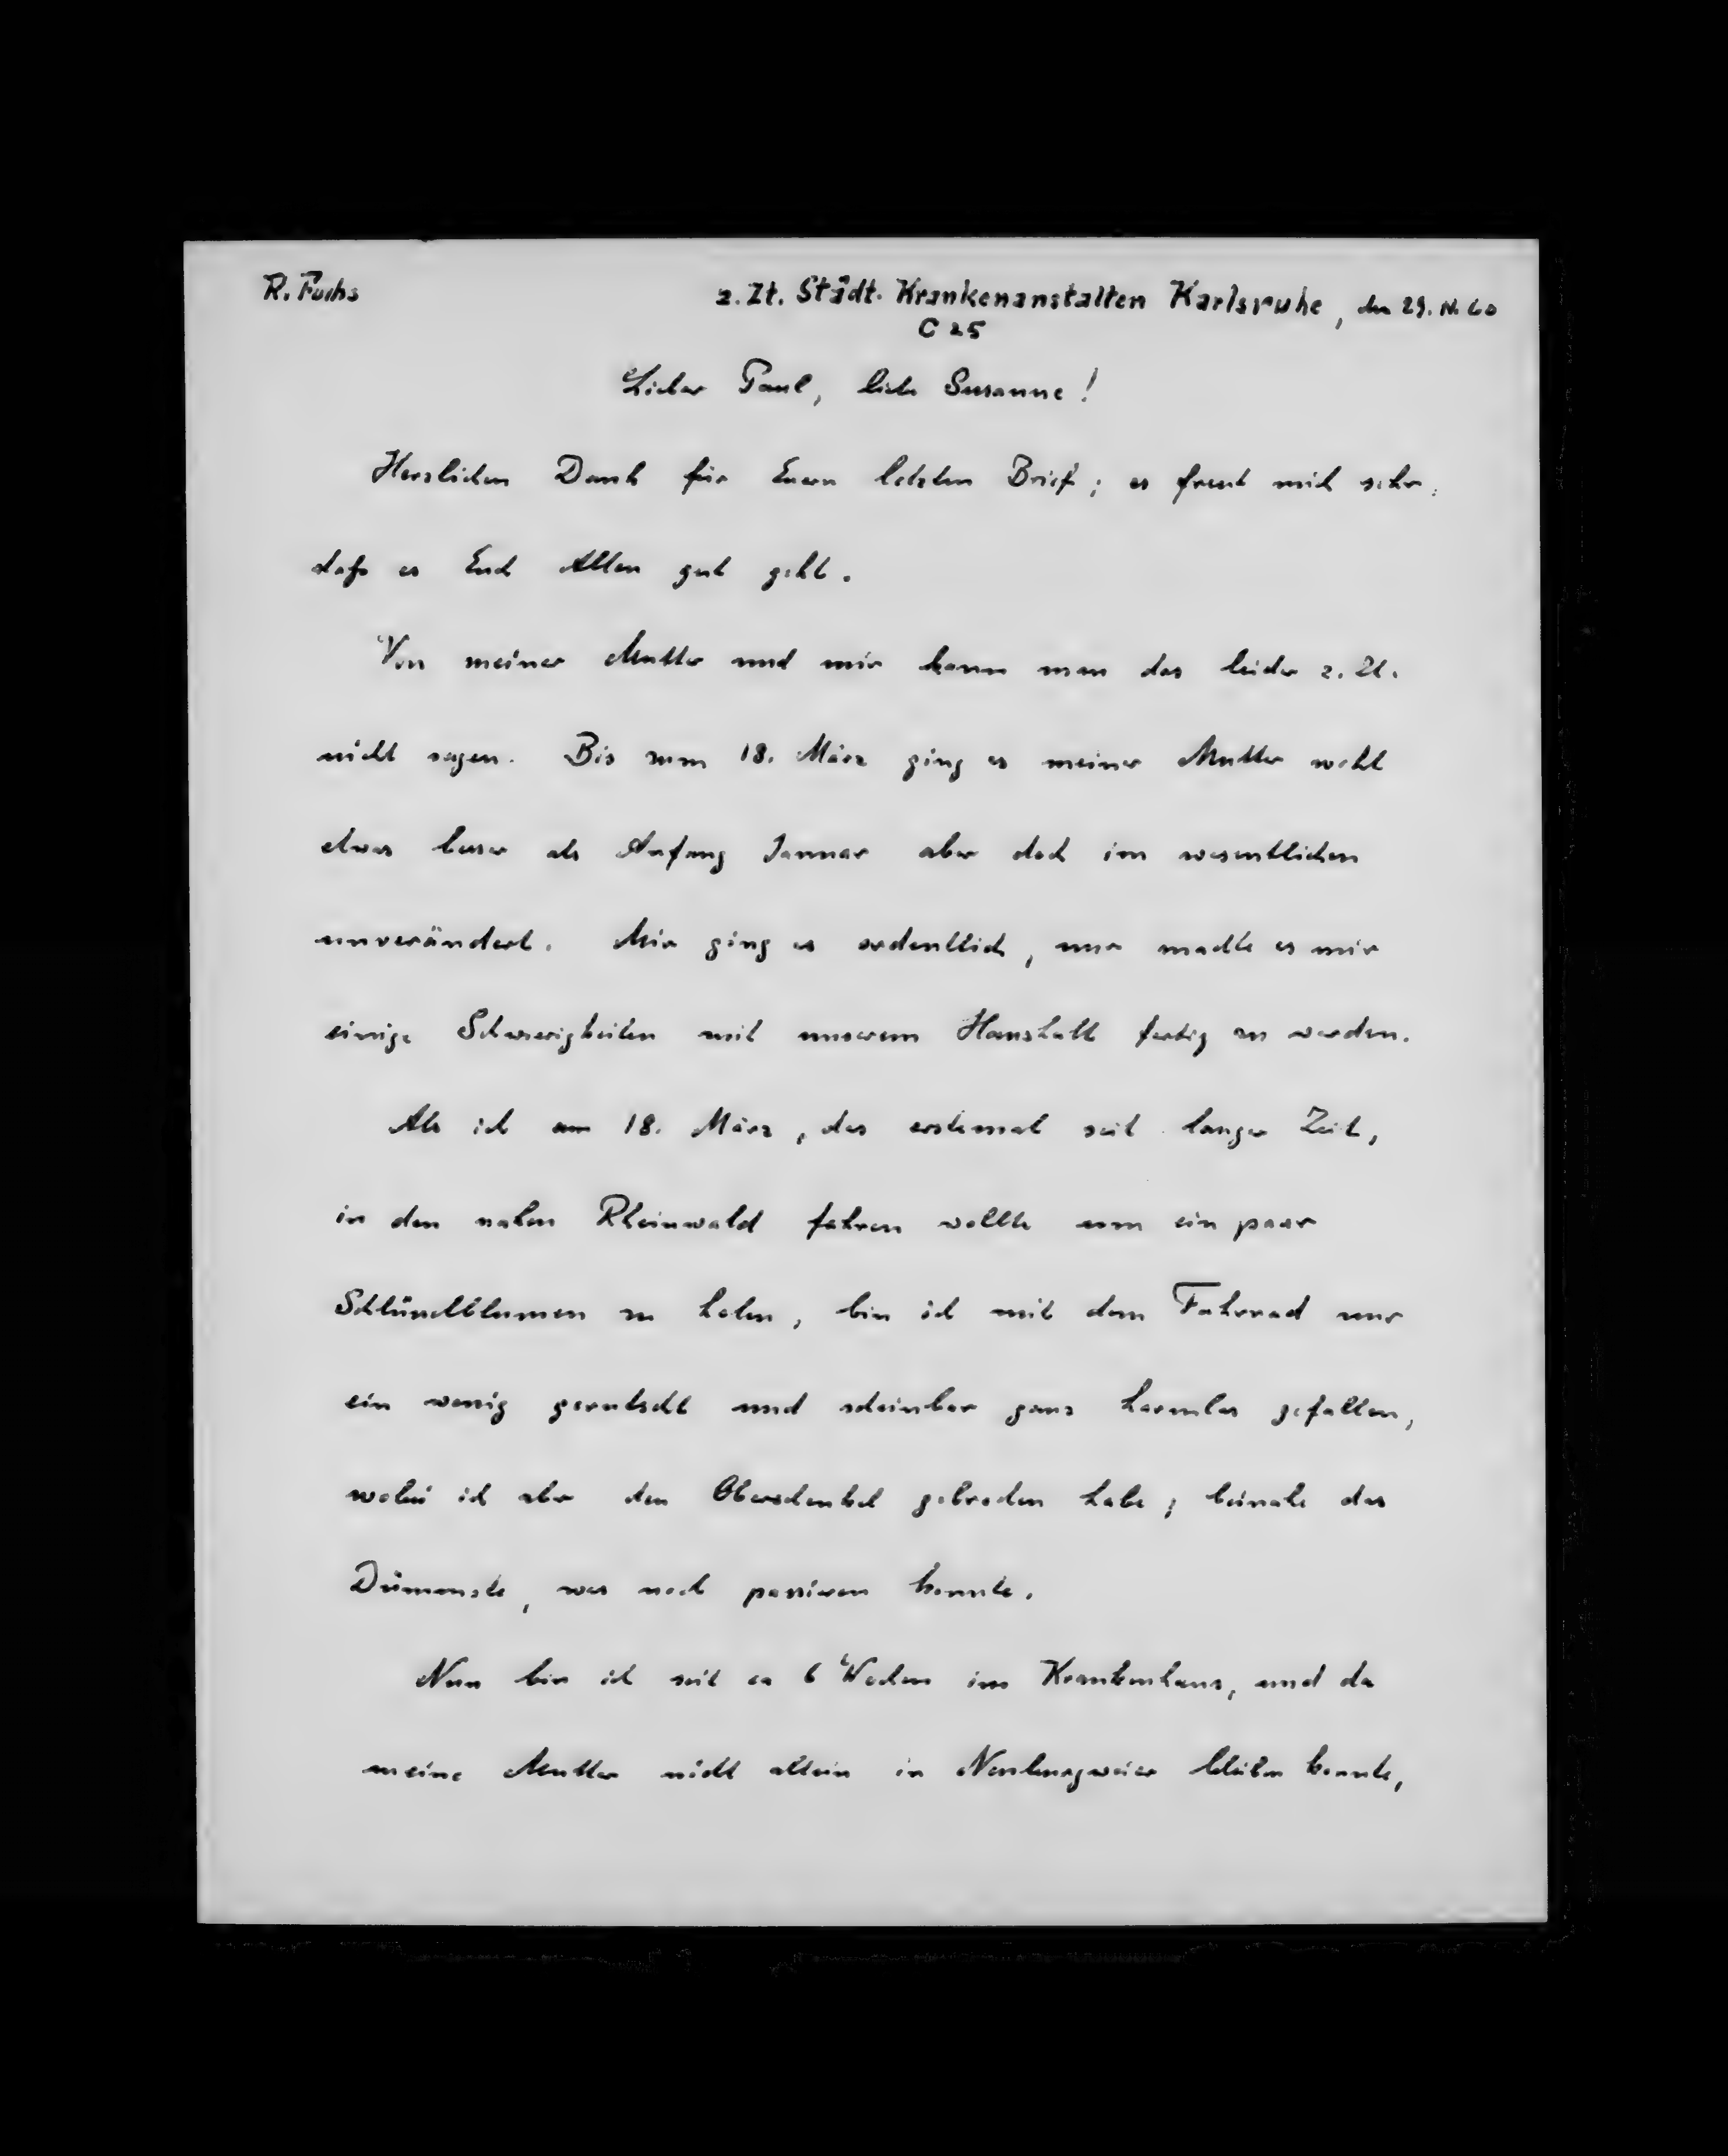 R. Fuchs
z. Zt. Städt. Krankenanstalten Karlsruhe, den 29. IV. 60
C 25
Lieber Paul, liebe Susanne!
Herzlichen Dank für Euern letzten Brief; es freut mich sehr,
daß es Euch Allen gut geht.
Von meiner Mutter und mir kann man das leider z. Zt.
nicht sagen. Bis zum 18. März ging es meiner Mutter wohl
etwas besser als Anfang Januar aber doch im wesentlichen
unverändert. Mir ging es ordentlich, nur machte es mir
einige Schwierigkeiten mit unserem Haushalt fertig zu werden.
Als ich am 18. März, das erstemal seit langer Zeit,
in den nahen Rheinwald fahren wollte um ein paar
Schlüsselblumen zu holen, bin ich mit dem Fahrrad nur
ein wenig gerutscht und scheinbar ganz harmlos gefallen,
wobei ich aber den Oberschenkel gebrochen habe; beinahe das
Dümmste, was noch passieren konnte.
Nun bin ich seit ca 6 Wochen im Krankenhaus, und da
meine Mutter nicht allein in Neuburgweier bleiben konnte,